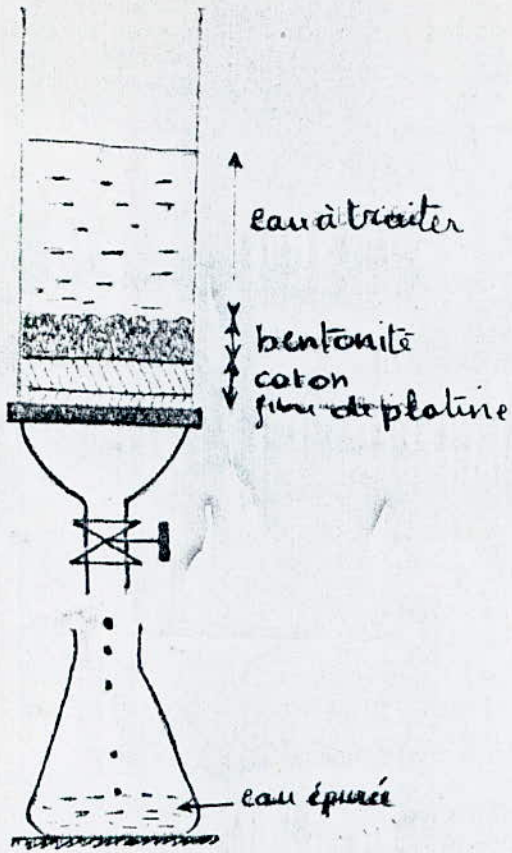 eau à traiter
bentonité
coton
de platine
eau épurée